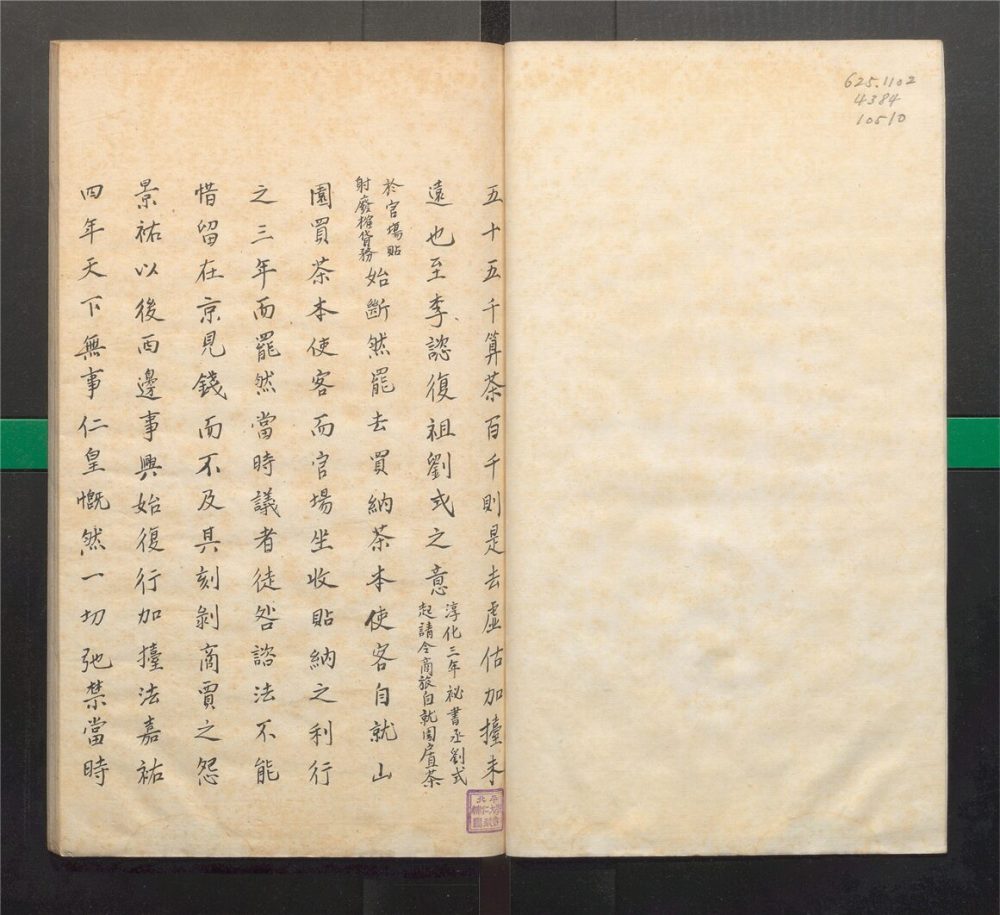 625.1102
4384
10510
五十五千算茶百千則是去虛估加擡未
遠也至李諮復祖劉式之意
淳化三年祕書丞劉式
起請令商旅自就園戶置茶
於官場貼
射廢榷貨務
始斷然罷去買納茶本使客自就山
園買茶本使客而官場坐收貼納之利行
之三年而罷然當時議者徒咎諮法不能
惜留在京見錢而不及其刻剝商賈之怨
景祐以後西邊事興始復行加擡法嘉祐
四年天下無事仁皇慨然一切弛禁當時